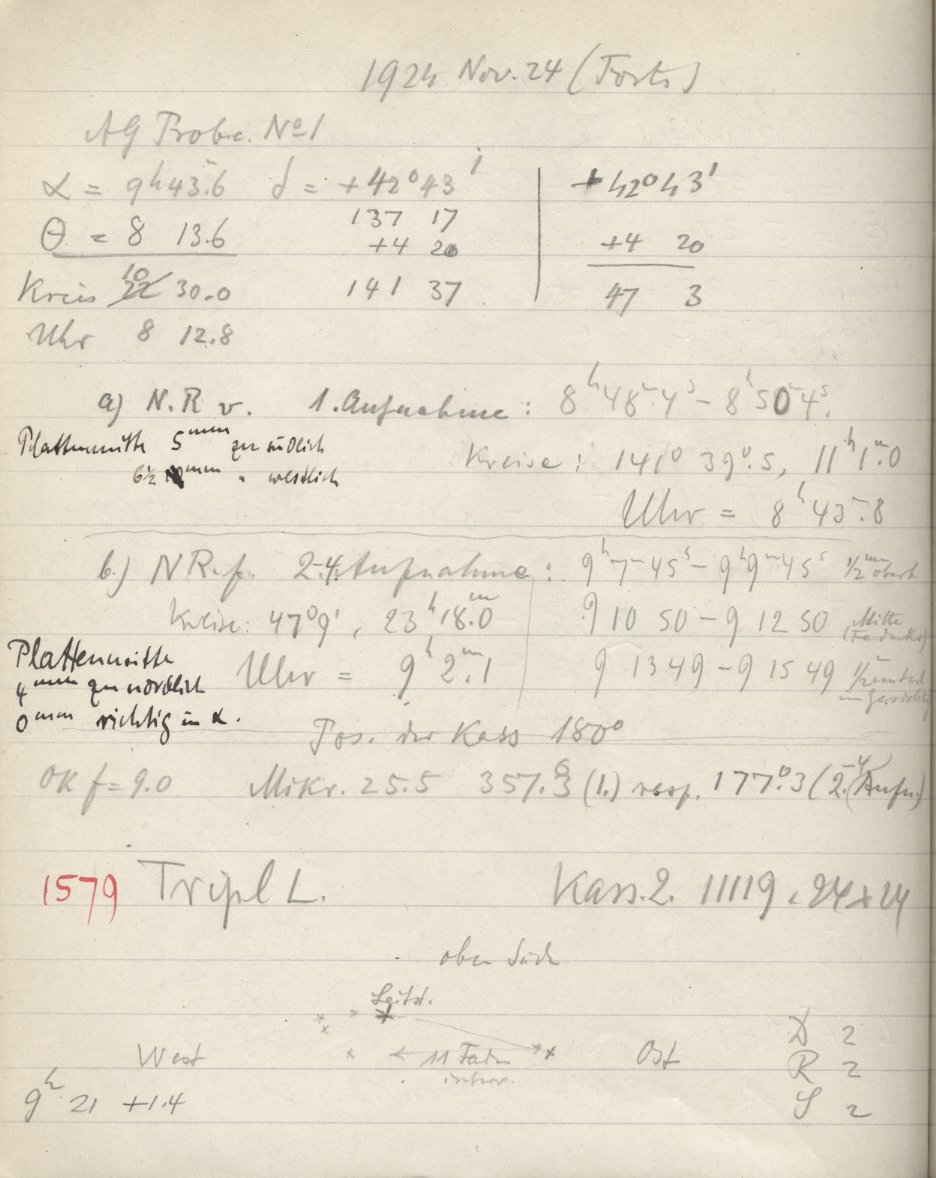 1924 Nov. 24 (Forts)
AG Probe. No 1
α = 9h 43.6 δ = +42° 43' +42° 43'
137 17
θ = 8 13.6 +4 20 +4 20
Kreis 10 22 30.0 141 37 47 3
Uhr 8 12.8
a) N.R v. 1. Aufnahme: 8h 48m 4s – 8h 50m 4s.
Plattenmitte 5mm zu südlich
6½ mm " westlich
Kreise: 141° 39'.5, 11h 1m.0
Uhr = 8h 43m.8
b.) N R. f. 2-4. Aufnahme: 9h 7m 45s – 9h 9m 45s ½mm oberh
Kreise: 47° 9', 23h 18m.0 9 10 50 – 9 12 50 Mitte
Plattenmitte
4mm zu nördlich
Uhr = 9h 2m.1 9 13 49 – 9 15 49 ½ unterh
0mm richtig in α.
Pos. der Kass 180°
OK f = 9.0 Mikr. 25.5 357.3 (1.) resp. 177°.3 (2.-4. Aufn.)
1579 Tripl L. Kass. 2. 11119, 24 x 24
oben Süden
Leitst.
West ← 11 Faden Ost
interv.
D 2
R 2
9h 21 +1.4 S 2